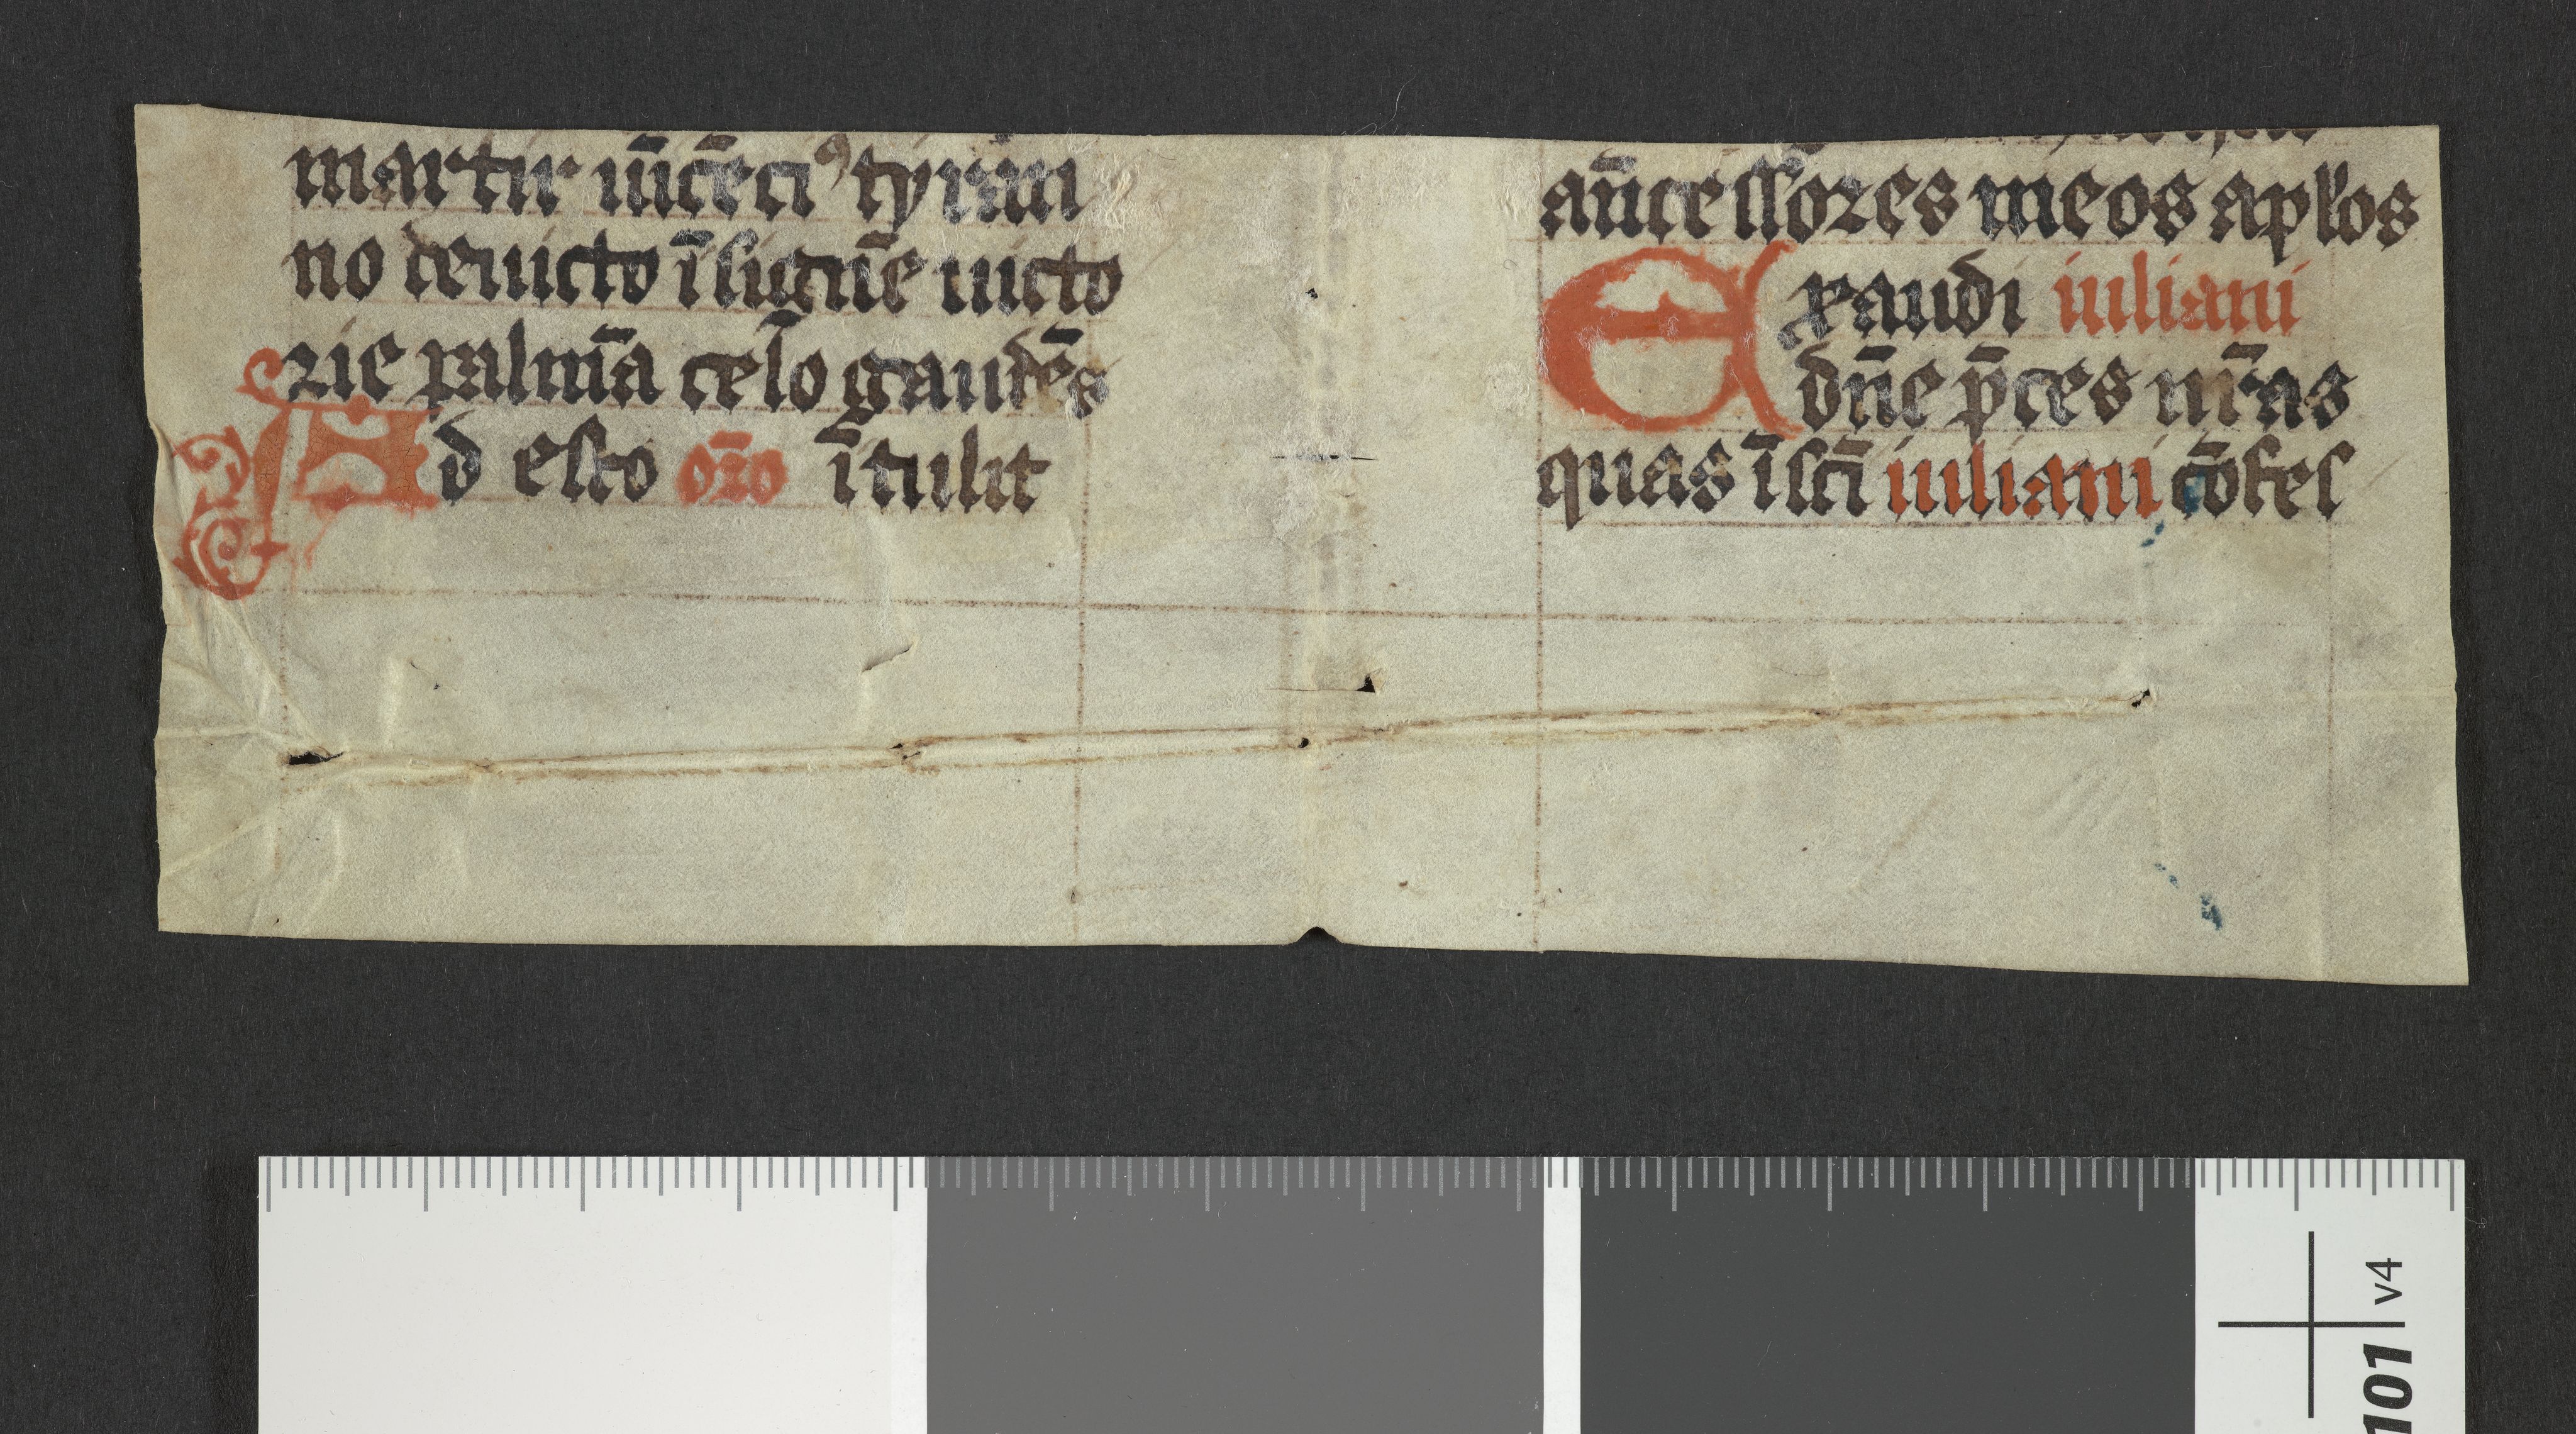 martir uīcēciꝰ tyran
no deuicto īsignē uicto
rie palmā celo gaudēs
Ad esto oro ītulit
añcessores meos aplos
Exaudi iuliani
dñe p̄ces nr̄as
quas ī scī iuliani cōfes
101 v4